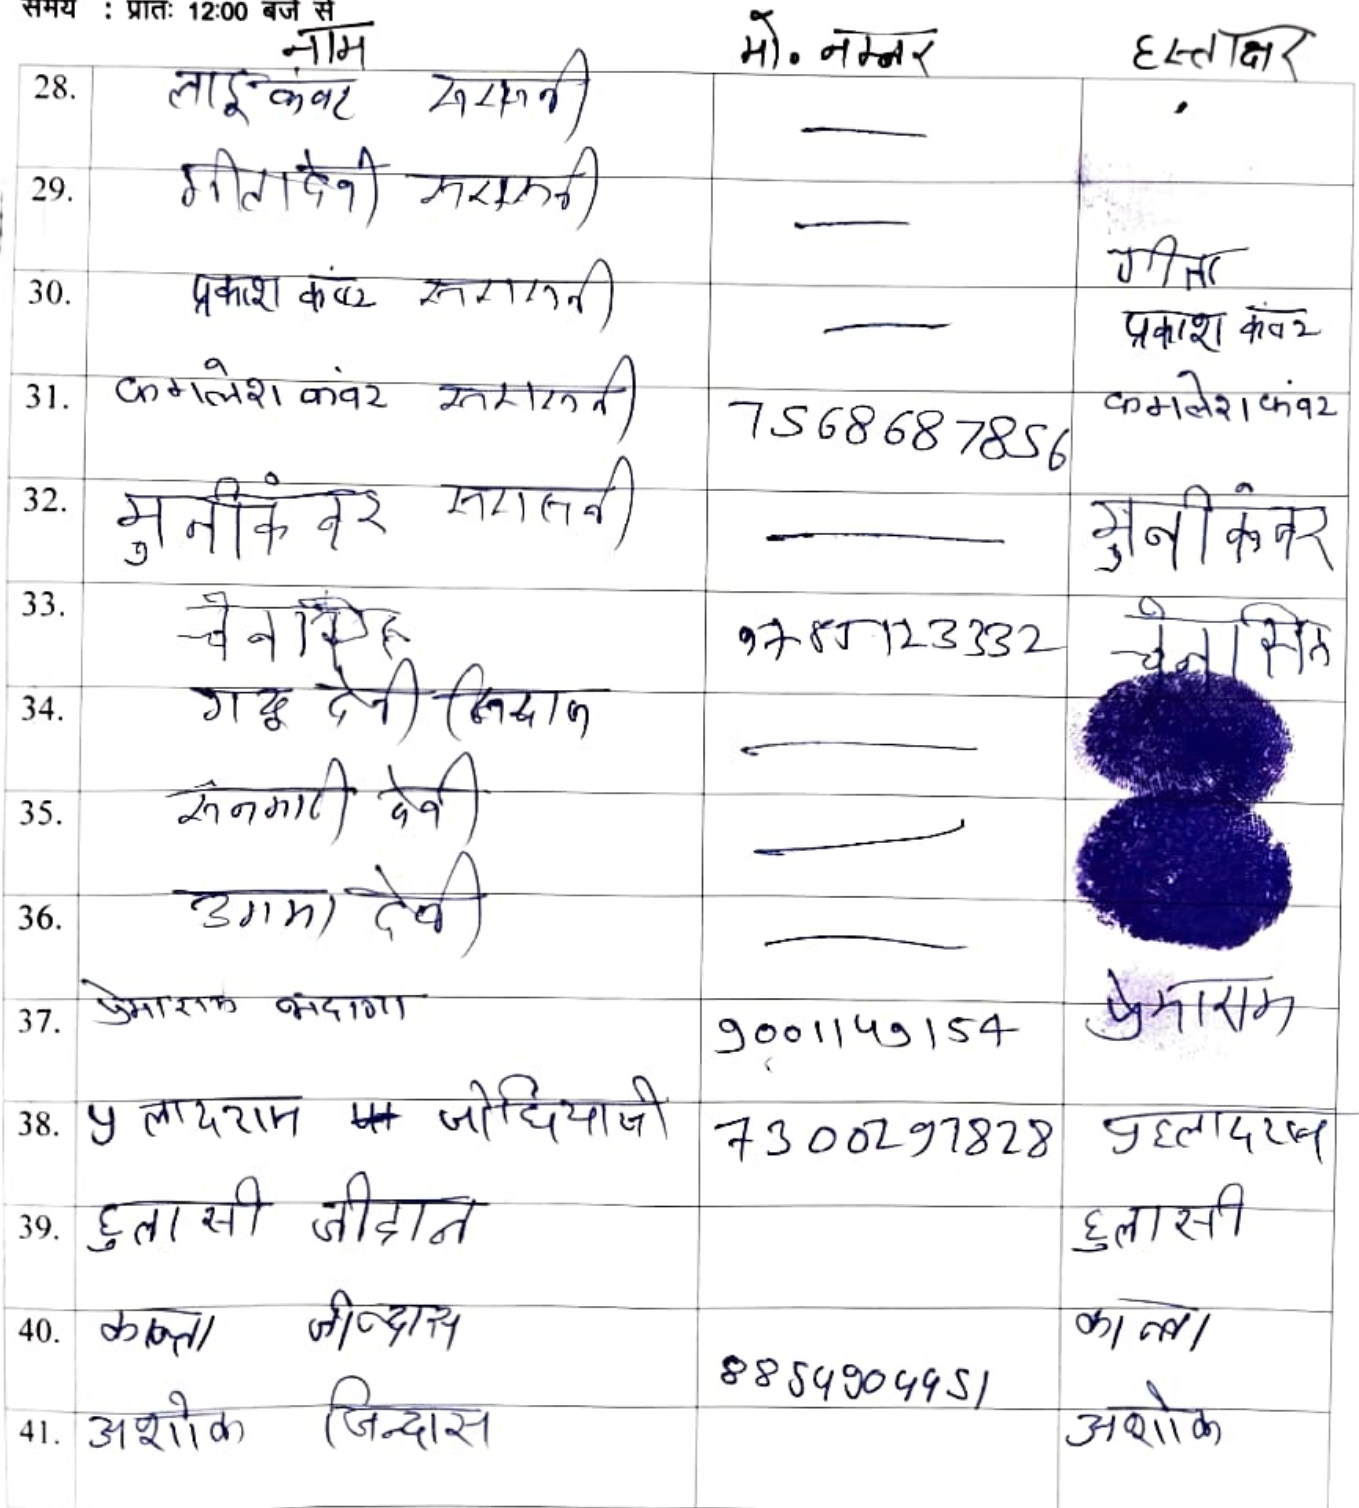 समय : प्रातः 12:00 बजे से
नाम मो. नम्बर हस्ताक्षर
28. लाडू कंवर
29. गीता देवी
गीता
30. प्रकाश कंवर प्रकाश कंवर
31. कमलेश कंवर 7568687856 कमलेश कंवर
32. मुनीकंवर मुनीकंवर
33. चेनासिंह 9785123332 चेनासिंह
34. देवी
35. देवी
36. उगमा देवी
37. प्रेमाराम 9001149154 प्रेमाराम
38. प्रलादराम जोधियाजी 7300297828 प्रहलादराम
39. हुलासी जीदान हुलासी
40. कान्ता जीन्दास कान्ता
8854904451
41. अशोक जिन्दास अशोक